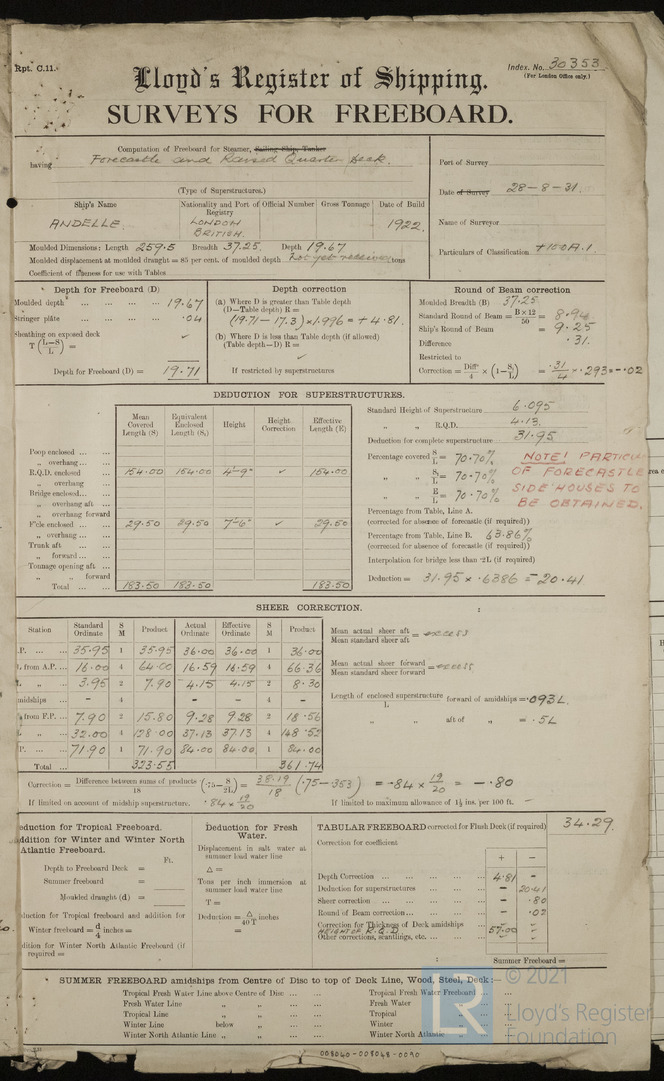 Rpt. C.11.
Index. No. 30353
(For London Office only.)
Lloyd's Register of Shipping.
SURVEYS FOR FREEBOARD.
Computation of Freeboard for Steamer, Sailing Ship, Tanker
having Forecastle and Raised Quarter Deck.
(Type of Superstructures.)
Port of Survey
Date of Survey 28-8-31.
Name of Surveyor
Particulars of Classification +100A.1.
Ship's Name
Nationality and Port of Registry
Official Number
Gross Tonnage
Date of Build
ANDELLE.
LONDON
BRITISH.
1922.
Moulded Dimensions: Length 259.5 Breadth 37.25 Depth 19.67
Moulded displacement at moulded draught = 85 per cent. of moulded depth Not yet received tons
Coefficient of fineness for use with Tables
Depth for Freeboard (D)
Moulded depth ... ... ... ... 19.67
Stringer plate ... ... ... ... .04
Sheathing on exposed deck
T (L-S/L) =
Depth for Freeboard (D) = 19.71
Depth correction
(a) Where D is greater than Table depth
(D-Table depth) R =
(19.71-17.3) × 1.996 = + 4.81.
(b) Where D is less than Table depth (if allowed)
(Table depth-D) R =
If restricted by superstructures
Round of Beam correction
Moulded Breadth (B) 37.25
Standard Round of Beam = B×12/50 = 8.94
Ship's Round of Beam = 9.25
Difference .31.
Restricted to
Correction = Diff/4 × (1-S₁/L) = .31/4 × .293 = -.02
DEDUCTION FOR SUPERSTRUCTURES.
Mean Covered Length (S)
Equivalent Enclosed Length (S₁)
Height
Height Correction
Effective Length (E)
Poop enclosed ...
„ overhang ...
R.Q.D. enclosed 154.00 154.00 4'-9" ✓ 154.00
„ overhang
Bridge enclosed...
„ overhang aft ...
„ overhang forward
F'cle enclosed ... 29.50 29.50 7'-6" ✓ 29.50
„ overhang ...
Trunk aft ...
„ forward ...
Tonnage opening aft ...
„ „ forward
Total ... 183.50 183.50 183.50
Standard Height of Superstructure 6.095
„ „ R.Q.D. 4.13.
Deduction for complete superstructure 31.95
Percentage covered S/L = 70.70%
„ „ S₁/L = 70.70%
„ „ E/L = 70.70%
Percentage from Table, Line A.
(corrected for absence of forecastle (if required))
Percentage from Table, Line B. 63.86%
(corrected for absence of forecastle (if required))
Interpolation for bridge less than ·2L (if required)
Deduction = 31.95 × .6386 = -20.41
NOTE! PARTICU
OF FORECASTLE
SIDE HOUSES TO
BE OBTAINED.
SHEER CORRECTION.
Station
Standard Ordinate
S M
Product
Actual Ordinate
Effective Ordinate
S M
Product
.P. ... ... 35.95 1 35.95 36.00 36.00 1 36.00
from A.P. ... 16.00 4 64.00 16.59 16.59 4 66.36
„ ... 3.95 2 7.90 4.15 4.15 2 8.30
midships ... - 4 - - - 4 -
from F.P. ... 7.90 2 15.80 9.28 9.28 2 18.56
„ ... 32.00 4 128.00 37.13 37.13 4 148.52
P. ... ... 71.90 1 71.90 84.00 84.00 1 84.00
Total ... 323.55 361.74
Mean actual sheer aft
Mean standard sheer aft = excess
Mean actual sheer forward
Mean standard sheer forward = excess
Length of enclosed superstructure forward of amidships = .093L.
L
„ aft of „ = .5L
Correction = Difference between sums of products/18 (·75 - S/2L) = 38.19/18 (.75-.353) = -.84 × 19/20 = -.80
If limited on account of midship superstructure. .84 × 19/20
If limited to maximum allowance of 1½ ins. per 100 ft.
eduction for Tropical Freeboard.
ddition for Winter and Winter North
Atlantic Freeboard.
Ft.
Depth to Freeboard Deck =
Summer freeboard =
Moulded draught (d) =
duction for Tropical freeboard and addition for
Winter freeboard = d/4 inches =
dition for Winter North Atlantic Freeboard (if
required =
Deduction for Fresh
Water.
Displacement in salt water at
summer load water line
Δ =
Tons per inch immersion at
summer load water line
T =
Deduction = Δ/40T inches
=
TABULAR FREEBOARD corrected for Flush Deck (if required) 34.29.
Correction for coefficient
+ -
Depth Correction ... 4.81 -
Deduction for superstructures ... - 20.41
Sheer correction ... - .80
Round of Beam correction... - .02
Correction for Thickness of Deck amidships
HEIGHT OF R.Q.D. 57.00 -
Other corrections, scantlings, etc. ...
Summer Freeboard =
SUMMER FREEBOARD amidships from Centre of Disc to top of Deck Line, Wood, Steel, Deck:—
Tropical Fresh Water Line above Centre of Disc ...
Tropical Fresh Water Freeboard ...
Fresh Water Line „ „ ...
Fresh Water „ ...
Tropical Line „ „ ...
Tropical „ ...
Winter Line below „ ...
Winter „ ...
Winter North Atlantic Line „ „ ...
Winter North Atlantic „ ...
© 2021
Lloyd's Register
Foundation
LR
008040-008048-0090